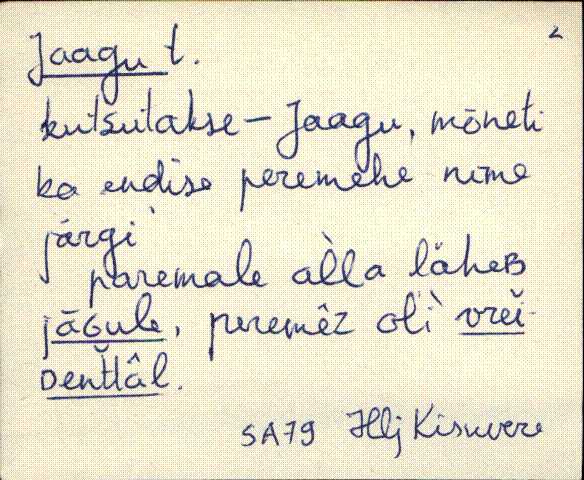 2
Jaagu t.
kutsutakse – Jaagu, mõneti
ka endise peremehe nime
järgi
paremale àlla läheʙ
jāGule, peremêz olì vrei-
DentĬâl.
SA79 Hlj Kisuvere